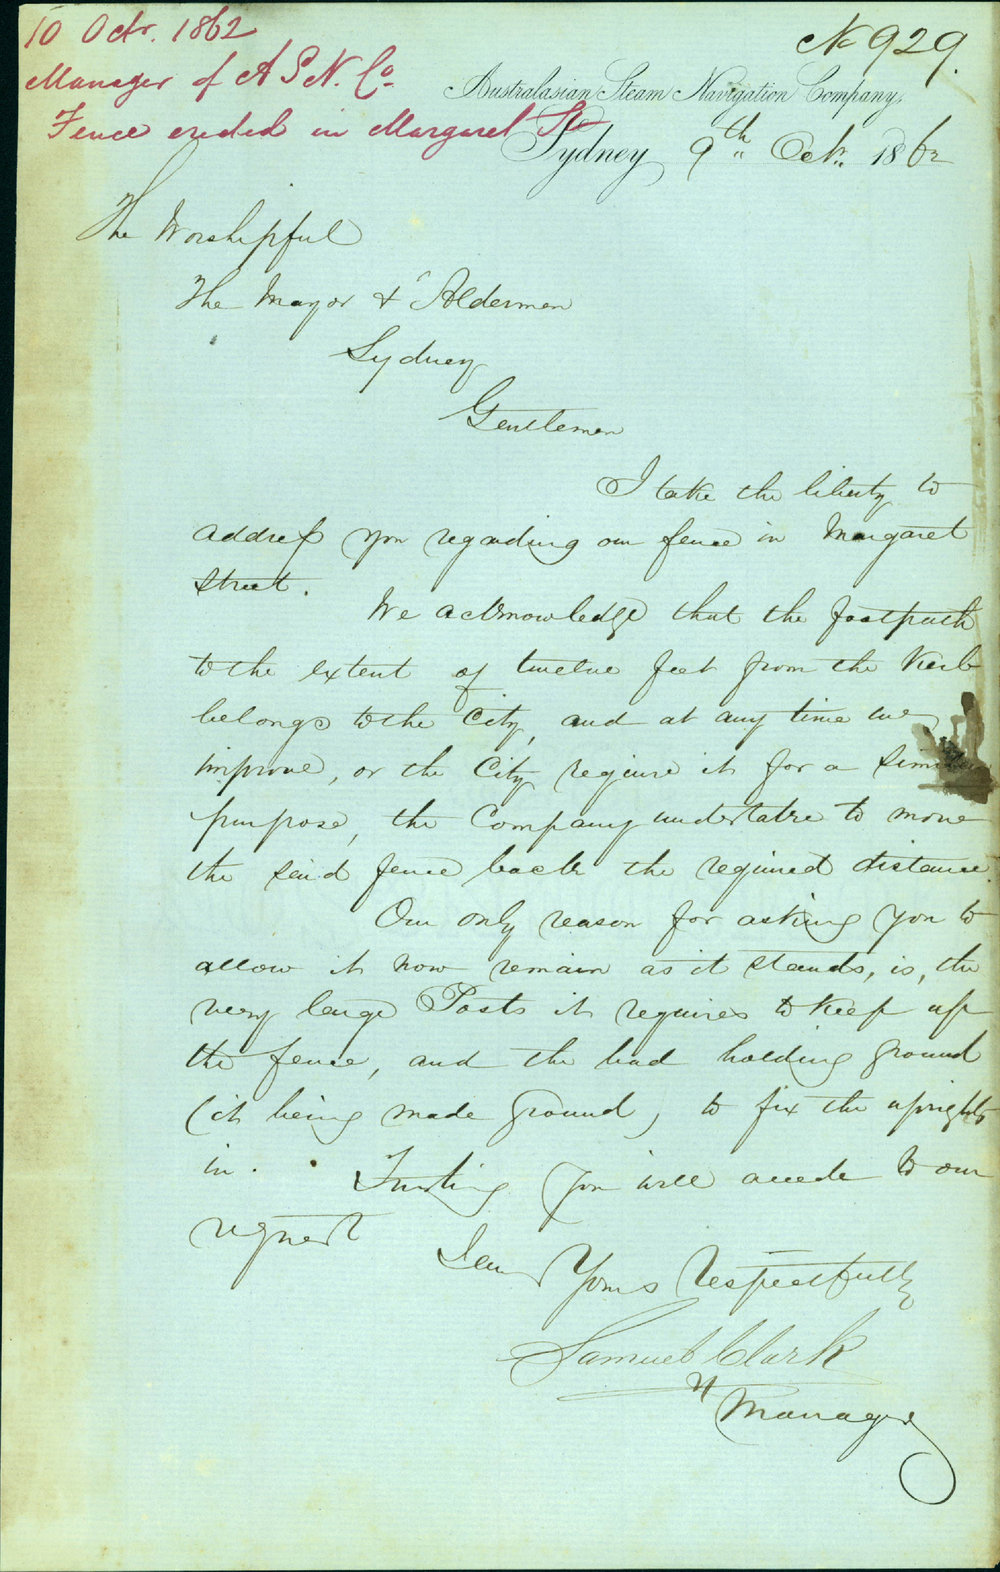 10 Octr. 1862
Manager of A S N. Co
Fence erected in Margaret St
No 929.
Australasian Steam Navigation Company,
Sydney 9th Octr. 1862
The Worshipful
The Mayor & Aldermen
Sydney
Gentlemen
I take the liberty to
address you regarding our fence in Margaret
Street.
We acknowledge that the footpath
to the extent of twelve feet from the Kerb
belongs to the City, and at any time we
improve, or the City require it for a similar
purpose, the Company undertake to move
the said fence back the required distance.
Our only reason for asking you to
allow it now remain as it stands, is, the
very large Posts it requires to keep up
the fence, and the bad holding ground
(it being made ground) to fix the uprights
in.
Trusting you will accede to our
request
I am Yours Respectfully
Samuel Clark
Manager